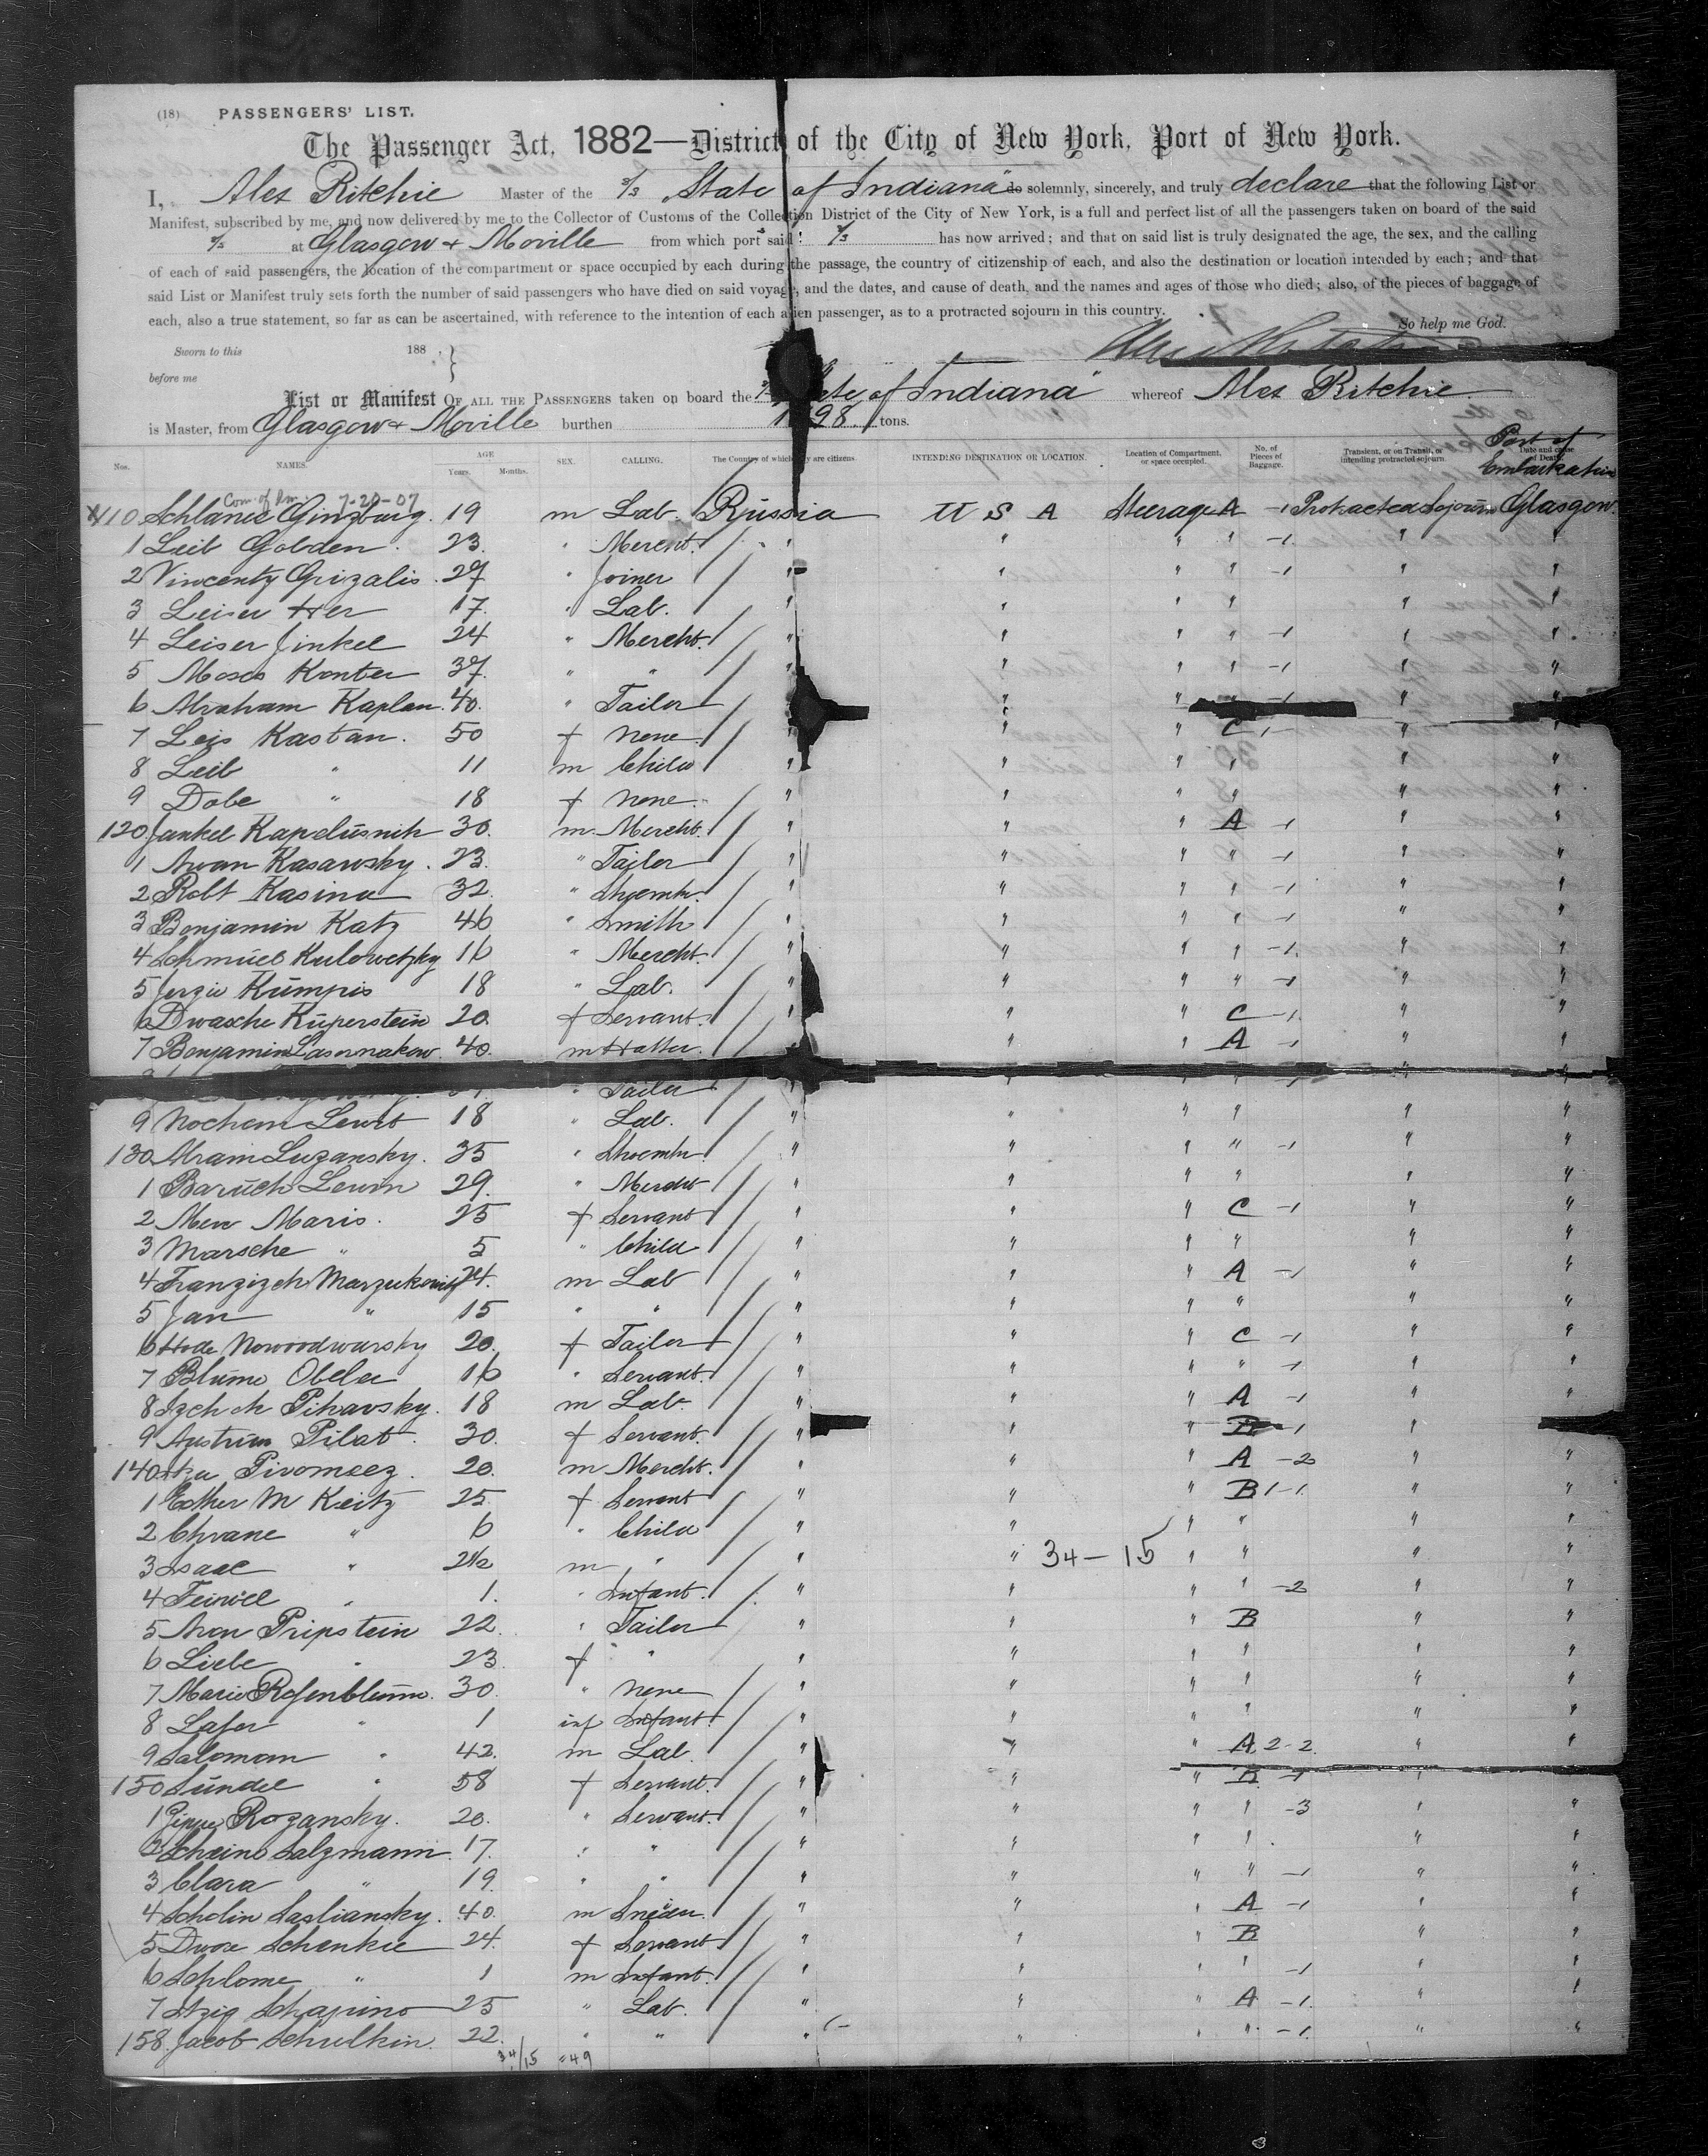 (18) PASSENGERS' LIST.
The Passenger Act, 1882—District of the City of New York, Port of New York.
I, Alex Ritchie Master of the S/S "State of Indiana" do solemnly, sincerely, and truly declare that the following List or
Manifest, subscribed by me, and now delivered by me to the Collector of Customs of the Collection District of the City of New York, is a full and perfect list of all the passengers taken on board of the said
S/S at Glasgow & Moville from which ports said S/S has now arrived; and that on said list is truly designated the age, the sex, and the calling
of each of said passengers, the location of the compartment or space occupied by each during the passage, the country of citizenship of each, and also the destination or location intended by each; and that
said List or Manifest truly sets forth the number of said passengers who have died on said voyage, and the dates, and cause of death, and the names and ages of those who died; also, of the pieces of baggage of
each, also a true statement, so far as can be ascertained, with reference to the intention of each alien passenger, as to a protracted sojourn in this country.
So help me God.
Sworn to this 188 ,
before me
List or Manifest OF ALL THE PASSENGERS taken on board the State of Indiana" whereof Alex Ritchie
is Master, from Glasgow & Moville burthen tons.
Nos. NAMES. AGE Years. Months. SEX. CALLING. The Country of which they are citizens INTENDING DESTINATION OR LOCATION. Location of Compartment, or space occupied. No. of Pieces of Baggage. Transient, or on Transit, or intending protracted sojourn. Date and cause of Death. Port of Embarkation
7-20-07
110 Ginzburg. 19 m Lab. Russia U S A Steerage A -1 Protracted Sojourn Glasgow.
1 Leib Golden. 23. " Mercht. " " " " -1 " "
2 Vincenty Grizalis. 27 " Joiner " " " " -1 " "
3 Leiser Her 17. " Lab. " " " " " "
4 Leiser Jinkel 24 " Mercht. " " " " -1 " "
5 Moses Konter 37. " " " " " " -1 " "
6 Abraham Kaplan. 40. " Tailor " " " " -1 " "
7 Leis Kastan. 50 f None " " " C 1- " "
8 Leib " 11 m Child " " " " " "
9 Dobe " 18 f None. " " " " " "
120 Jankel Kapelusnik 30. m Mercht. " " " A -1 " "
1 Kasawsky. 23. " Tailor " " " " -1 " "
2 Robt Kasina 32. " Shoemkr. " " " " -1 " "
3 Benjamin Katz 46 " Smith " " " " -1 " "
4 Schmuel Kulowetzky 16 " Mercht. " " " " -1 " "
5 Jerzie Kumpis 18 " Lab. " " " " -1 " "
6 Dwasche Kuperstein 20. f Servant. " " " C -1. " "
7 Benjamin Lasornakow. 40. m Hatter. " " " A -1 " "
" Tailor " " " " -1 " "
9 Nochem Lewit 18 " Lab. " " " " " "
130 Abram Luzansky. 35 " Shoemkr. " " " " -1 " "
1 Baruch Lewin 29. " Mercht " " " " " "
2 Maris. 25 f Servant " " " C -1 " "
3 Marsche " 5 " Child " " " " " "
4 Franzizch 24. m Lab " " " A -1 " "
5 Jan " 15 " " " " " " " "
6 Hode Nowoodwarsky 20. f Tailor " " " C -1 " "
7 Blume Obeler 16 " Servant. " " " " -1 " "
8 Pikarsky. 18 m Lab. " " " A -1 " "
9 Pilat. 30. f Servant. " " " B -1 " "
140 20. m Mercht. " " " A -2 " "
1 Esther M Keitz 25. f Servant " " " B 1-1. " "
2 Chrane " 6 " Child " " " " " "
3 Isaac " 2½ m " " " 34-15 " " " "
4 " 1. " Infant. " " " " -2 " "
5 Aron Pripstein 22. " Tailor " " " B " "
6 Liebe " 23. f " " " " " " "
7 Marie Rosenblum. 30. " None " " " " " "
8 Laser " 1 inf Infant. " " " " " "
9 Saloman " 42. m Lab. " " " A 2-2. " "
150 Sundel " 58 f Servant. " " " B -1 " "
1 Rozansky. 20. " Servant. " " " " -3 " "
2 Scheine Salzmann. 17. " " " " " " " "
3 Clara " 19. " " " " " " -1 " "
4 Scholin Sasliansky. 40. m " " " A -1 " "
5 Dwore Schenkie 24. f Servant " " " B " "
6 Schlome " 1 m Infant. " " " " -1 " "
7 Itzig Schapiro 25 " Lab. " " " A -1. " "
158 Jacob Schulkin. 22. " " " " " " -1. " "
34/15 = 49